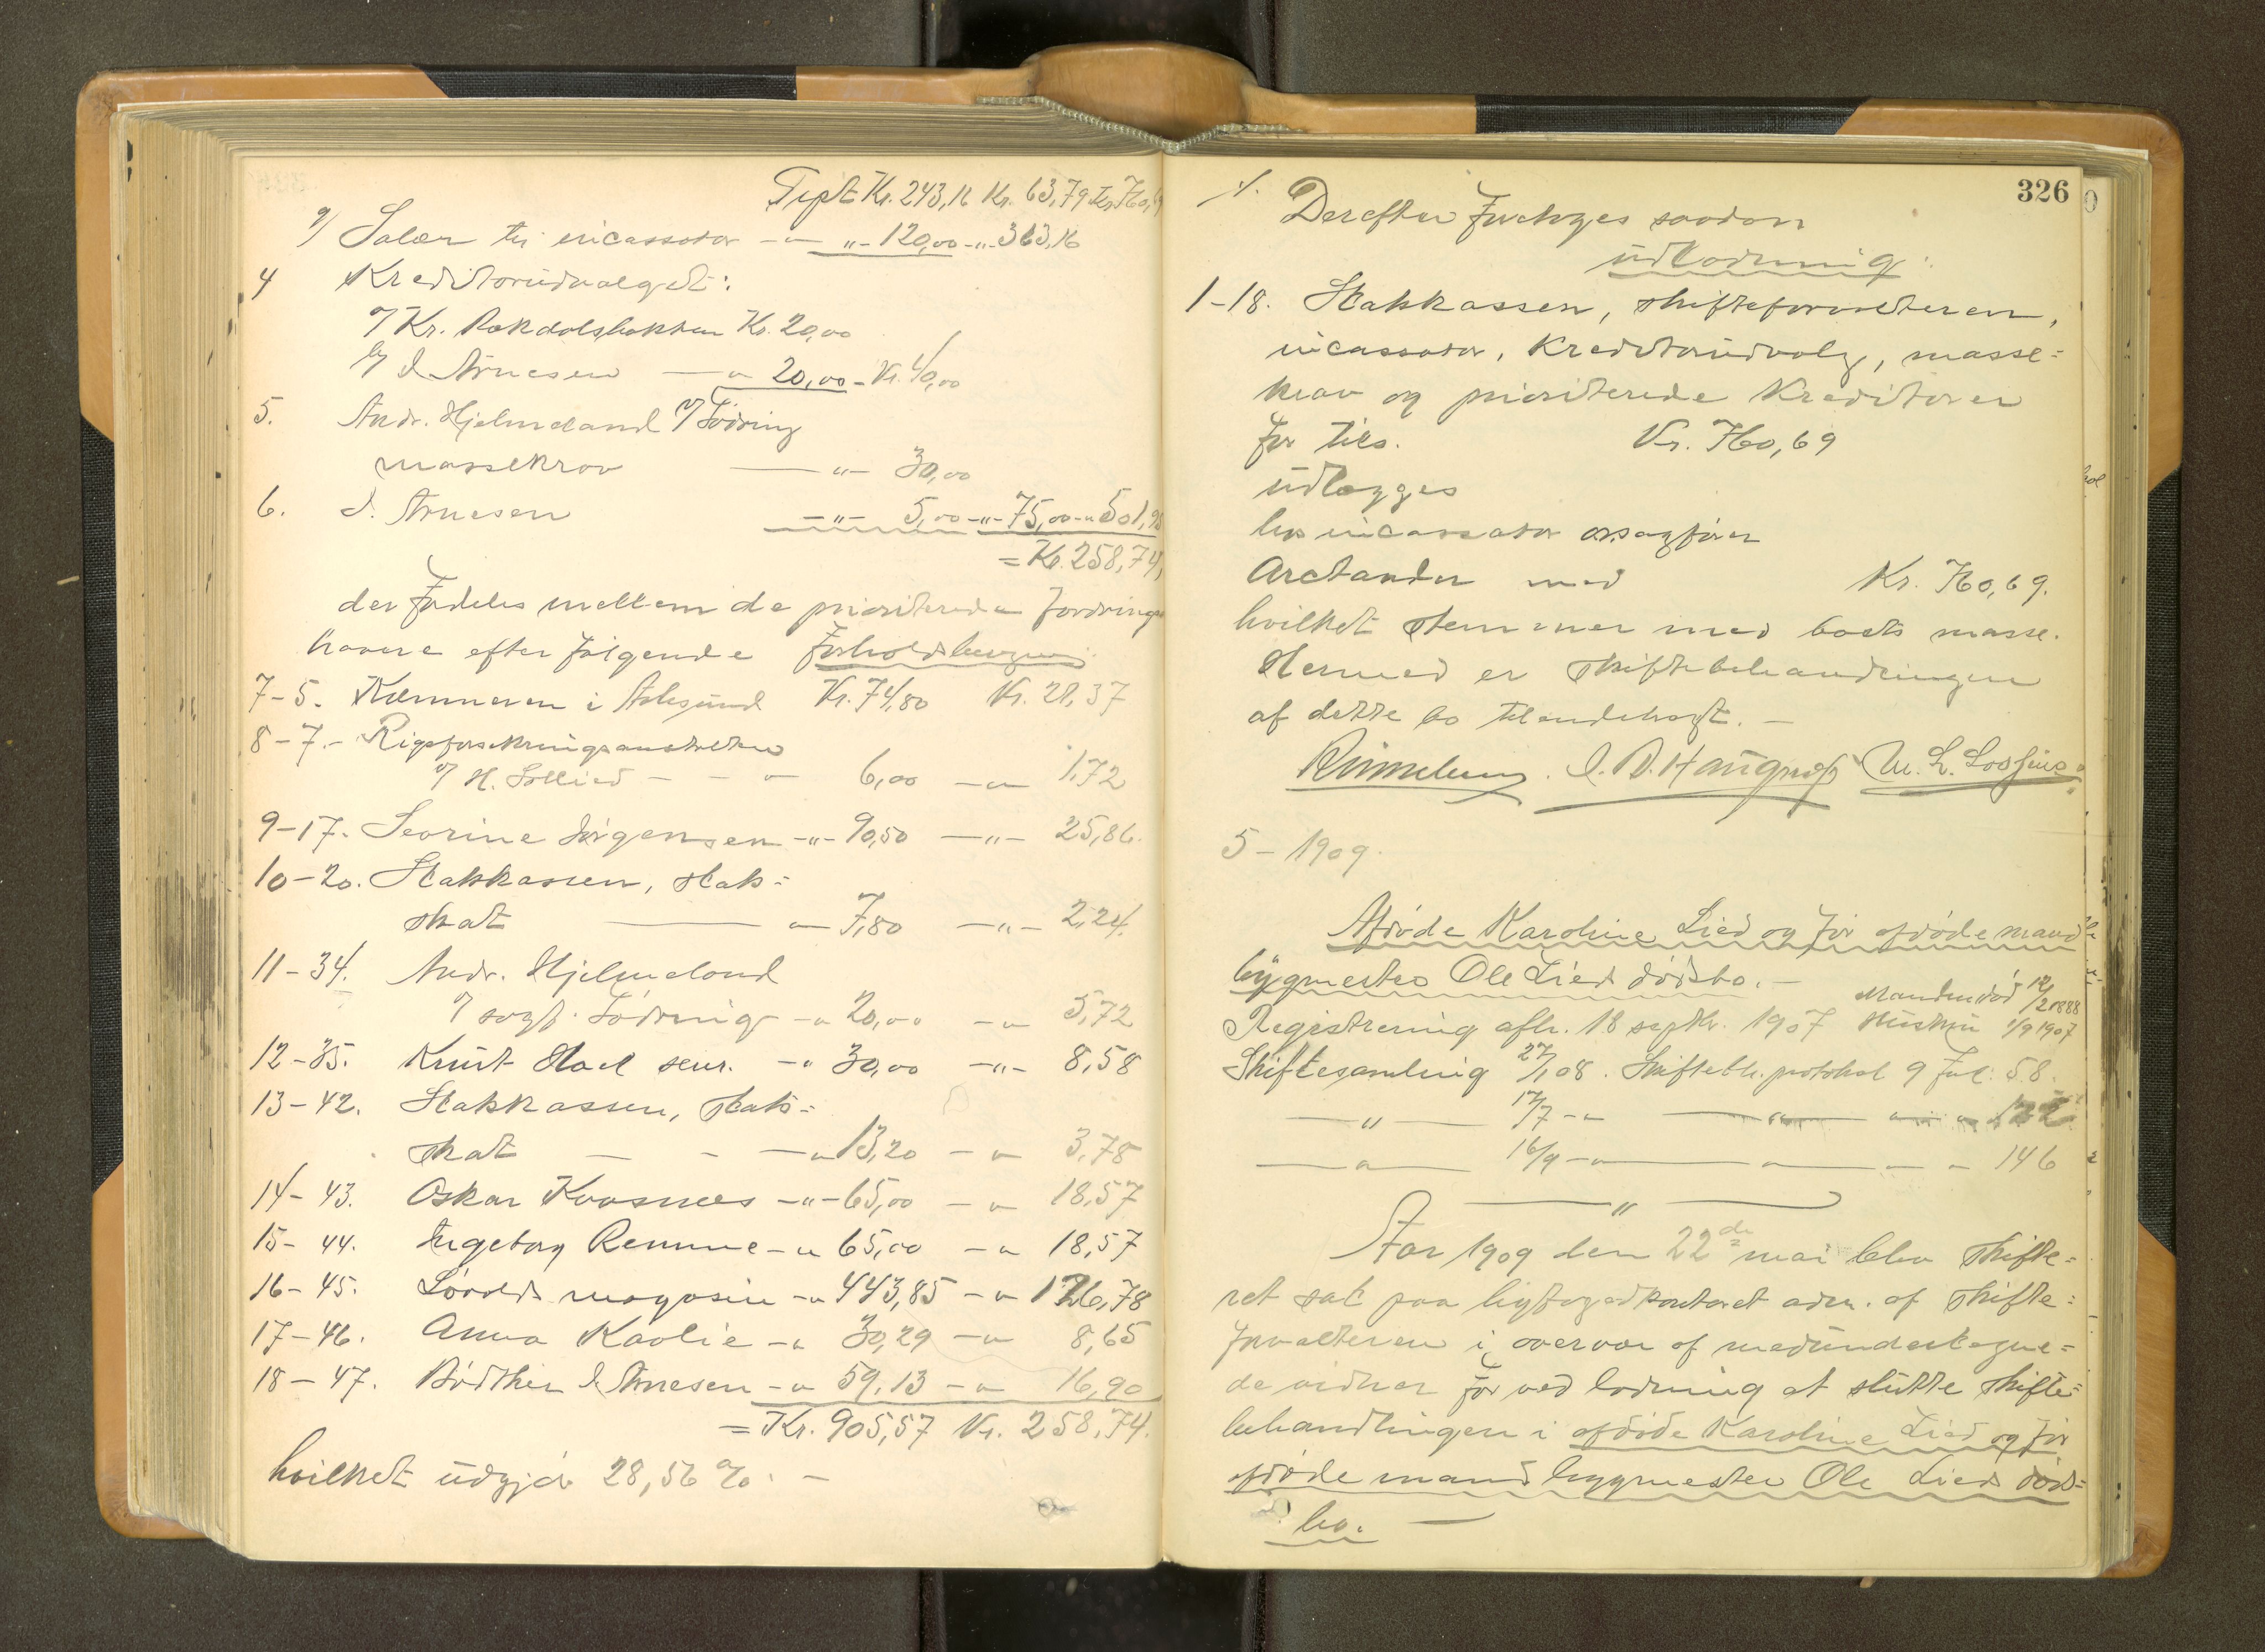 Tpt Kr. 243,16 Kr. 63,79 Kr. 760,69
9/ Salær til incassator - " - " - 120,00 - " - 363,16
4 Kreditorudvalget:
a/ Kr.
b/ I. Arnesen — " 20,00 - Kr. 40,00
5. Andr. Hjelmeland v/ Lödring
massekrav — " — 30,00
6. I. Arnesen — " — 5,00 - " - 75,00 - " 501,95
= Kr. 258,74,
der fordeles mellem de prioriterede fordrings
havere efter følgende forholdsberegning
7-5. Kæmneren i Aalesund Kr. 74,80 Kr. 21,37
8-7. - Rigsforsikringsanstalten
v/ H. Sollied - - " 6,00 - " 1,72
9-17. Sevrine Jörgensen - " - 90,50 — " — 25,86.
10-20. Statskassen, stats=
skat — " 7,80 — " — 2,24.
11-34. Andr. Hjelmeland
v/ sagf. Lödring - " 20,00 - " 5,72
12-35. Knut Hoel senr. - " 30,00 - " - 8,58
13-42. Statskassen, stats=
skat - - — " 13,20 - " 3,78
14-43. Oskar Kvasnes - " - 65,00 - " 18,57
15-44. Ingeborg Remme - " 65,00 - " 18,57
16-45. Lövolds magasin - " 443,85 - " 126,78
17-46. Anna Kavlie - " 30,29 - " 8,65
18-47. Bödker I. Arnesen - " 59,13 - " 16,90
= Kr. 905,57 Kr. 258,74.
hvilket udgjør 28,56 %. -
326
Derefter foretoges saadan
udlodning:
1-18. Statskassen, skifteforvalteren,
incassator, Kreditorudvalg, masse=
krav og prioriterede Kreditorer
for tils. Kr. 760,69
udlægges
hos incassator o.r.sagfører
Arctander med Kr. 760,69.
hvilket stemmer med boets masse.
Hermed er skiftebehandlingen
af dette bo tilendebragt. -
I. D. Haugnæss M. L. Lossius.
5 - 1909.
Afdöde Karoline Lied og før afdøde mand
bygmester Ole Lieds dödsbo. -
Manden död 12/2 1888
Registrering afh. 18 septbr. 1907 Hustru 1/9 1907
Skiftesamling 27/1 08. Skiftebh.protokol 9 fol. 58.
— " — 17/7 - " — " — " - " 122
— " — 16/9 - " — " — - " 146
— " —
Aar 1909 den 22de mai blev skifte=
ret sat paa byfogedkontoret adm. af skifte=
forvalteren i overvær af medundertegne=
de vidner for ved lodning at slutte skifte=
behandlingen i afdöde Karoline Lied og før
afdøde mand bygmester Ole Lieds döds=
bo. —